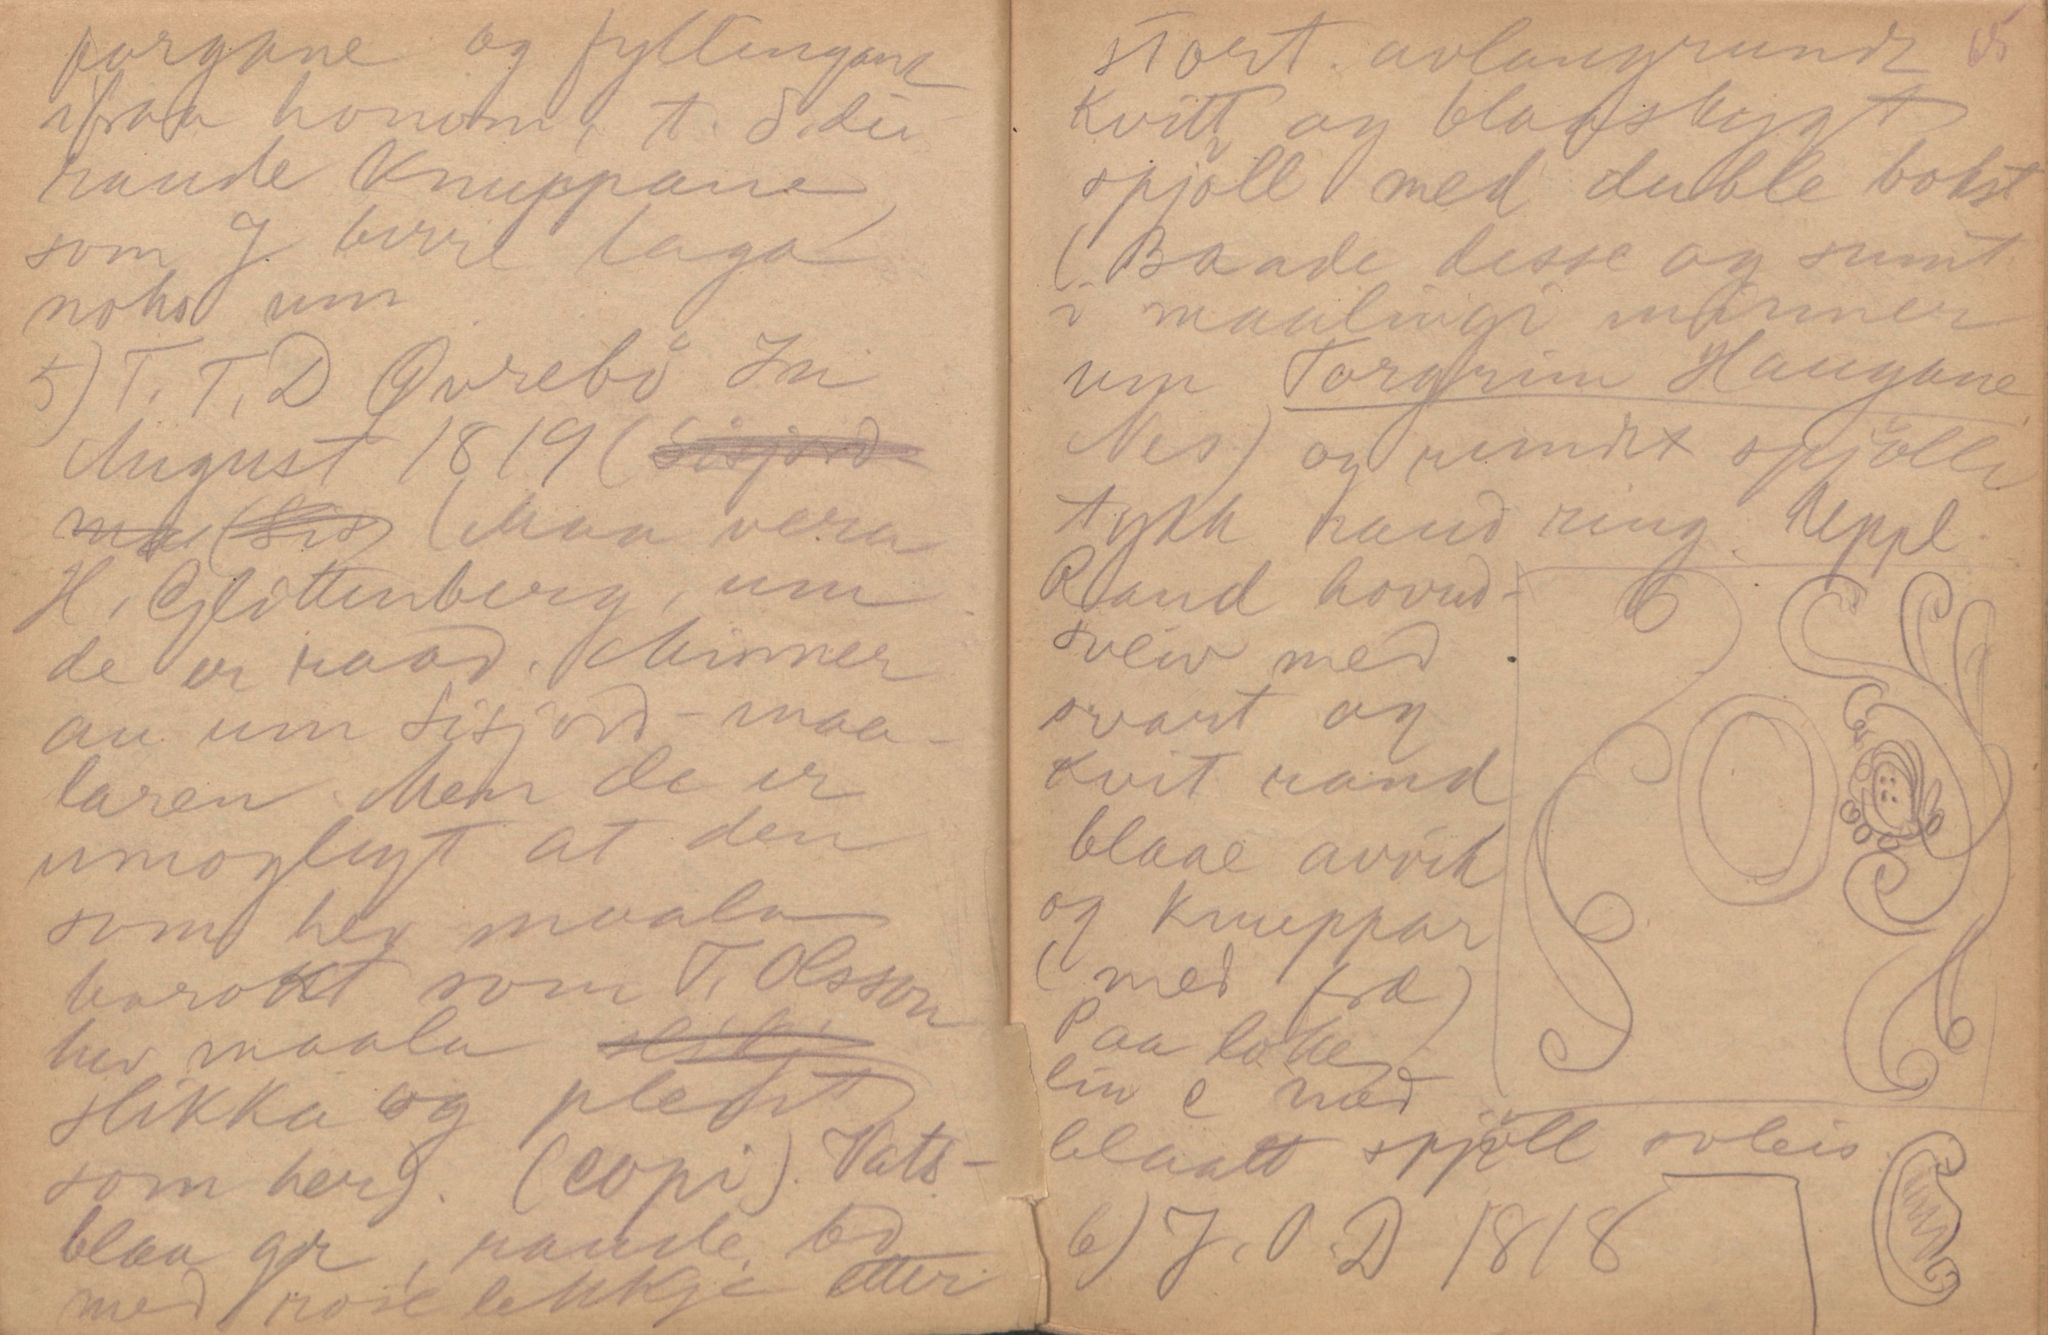 fargane og fyllingane
ifraa honom, t. d. dei
raude Knuppane
som J. berre laga
noko um
5) T. T. D Øvrebö Ini
August 1819 (Sisjord
maa (Sis (Maa vera
H. Glittenberg, um
de er raad. Minner
au um Sisjord-maa-
laren. Men de er
umoglegt at den
som hev maala
barokt som T. Olsson
hev maala
slikka og plent
som her). (copi). Vats-
blaa gr, raude, bd
med rose lekkje etter
65
stort avlangrundt
Kvitt og blaaskygt
spjöll med duble bokst
(Baade desse og sumt
i maalingi minner
um Torgrim Haugane
Nes) og rundt spjölli
tykk raud ring. Keppl.
Raud hovud-
sveiv med
svart og
kvit rand
blaae avvik
og Knuppar
(med frd)
Paa loke
lin e med
blaatt spjöll soleis
6) J. O. D 1818